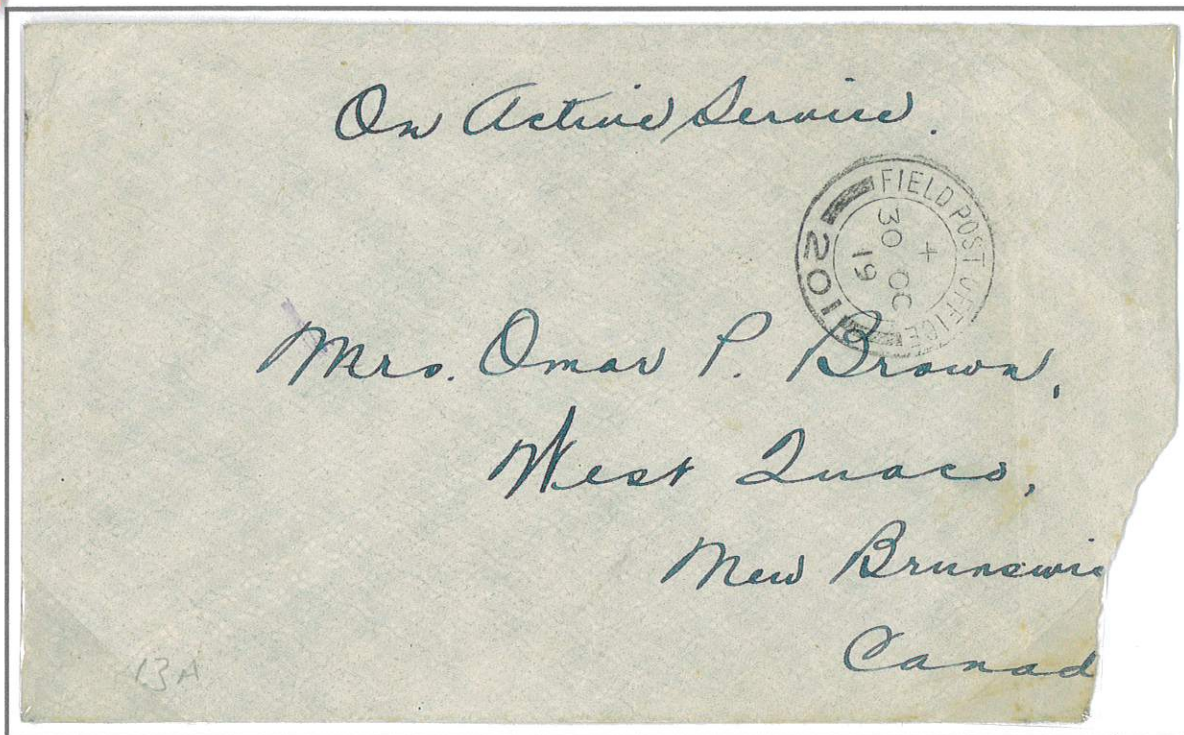 On Active Service.
FIELD POST OFFICE
+
30 OC
19
201
Mrs. Omar P. Brown,
West Quaco,
New Brunswi
Canad
13A